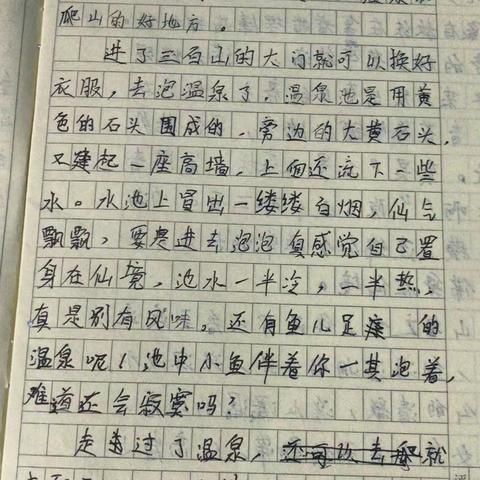 爬山的好地方。
进了三百山的大门就可以换好
衣服，去泡温泉了，温泉池是用黄
色的石头围成的，旁边的大黄石头，
又建起一座高墙，上面还流下一些
水。水池上冒出一缕缕白烟，仙气
飘飘，要是进去泡泡真感觉自己置
身在仙境，池水一半冷，一半热，
真是别有风味。还有鱼儿足疗的
温泉呢！池中小鱼伴着你一其泡着，
难道还会寂寞吗？
走过了温泉，还可以去就